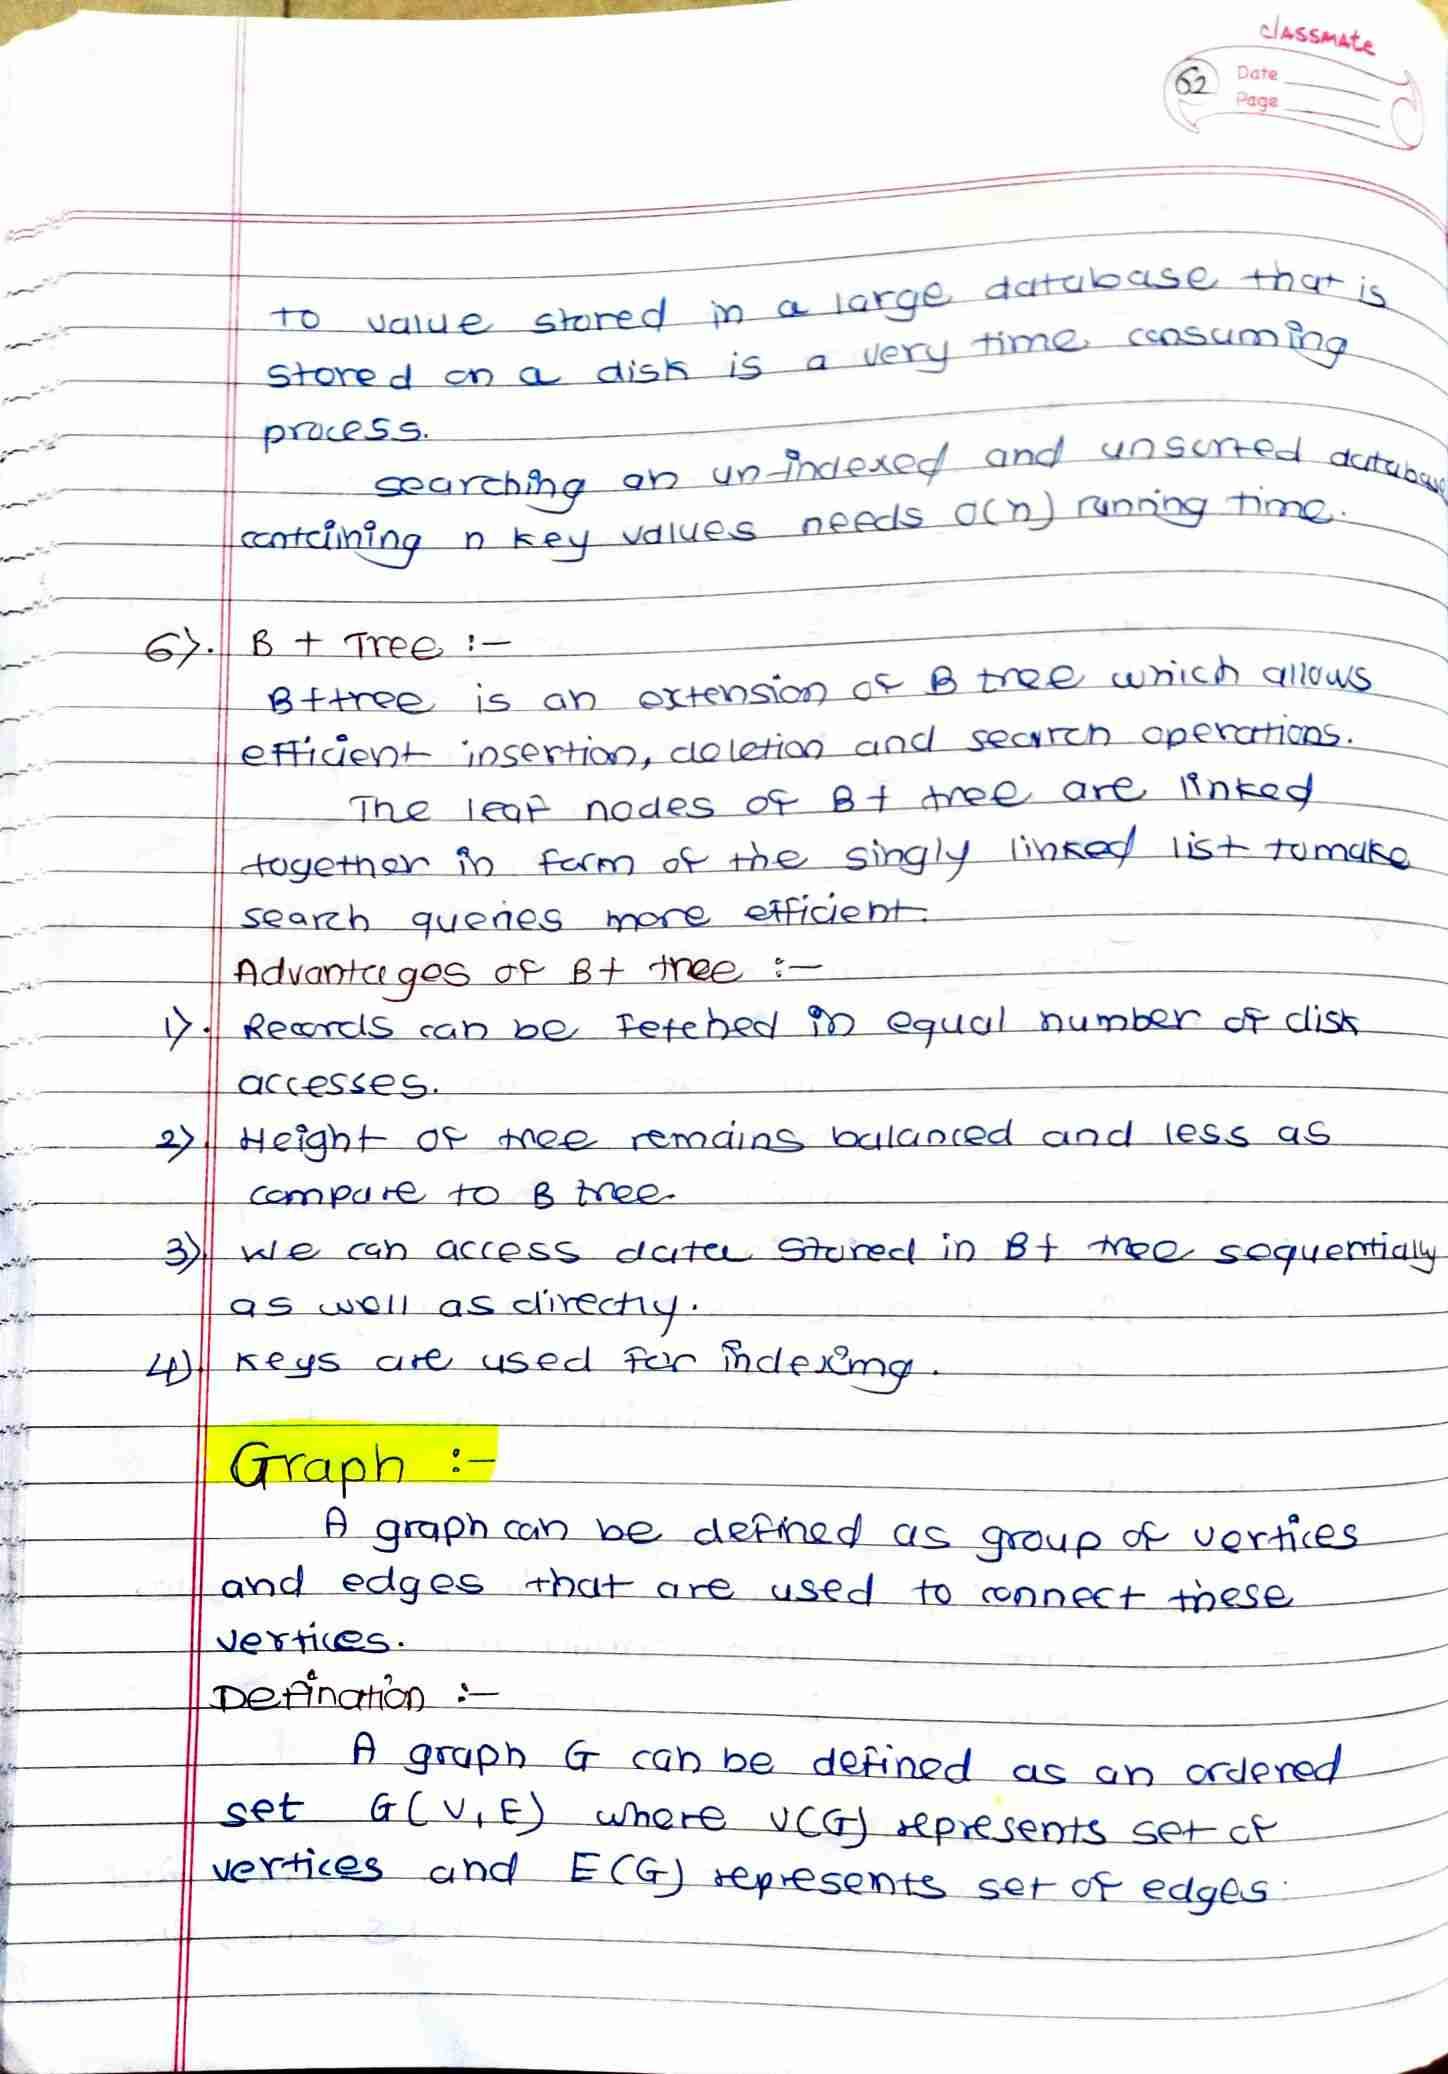 classmate
62
Date
Page
to value stored in a large database that is
stored on a disk is a very time consuming
process.
searching an un-indexed and unsorted database
containing n key values needs O(n) running time.
6). B + Tree :-
B+tree is an extension of B tree which allows
efficient insertion, deletion and search operations.
The leaf nodes of B+ tree are linked
together in form of the singly linked list to make
search queries more efficient.
Advantages of B+ tree :-
1). Records can be fetched in equal number of disk
accesses.
2) Height of tree remains balanced and less as
compare to B tree.
3) We can access data stored in B+ tree sequentially
as well as directly.
4) Keys are used for indexing.
Graph :-
A graph can be defined as group of vertices
and edges that are used to connect these
vertices.
Defination :-
A graph G can be defined as an ordered
set G(V, E) where V(G) represents set of
vertices and E(G) represents set of edges.